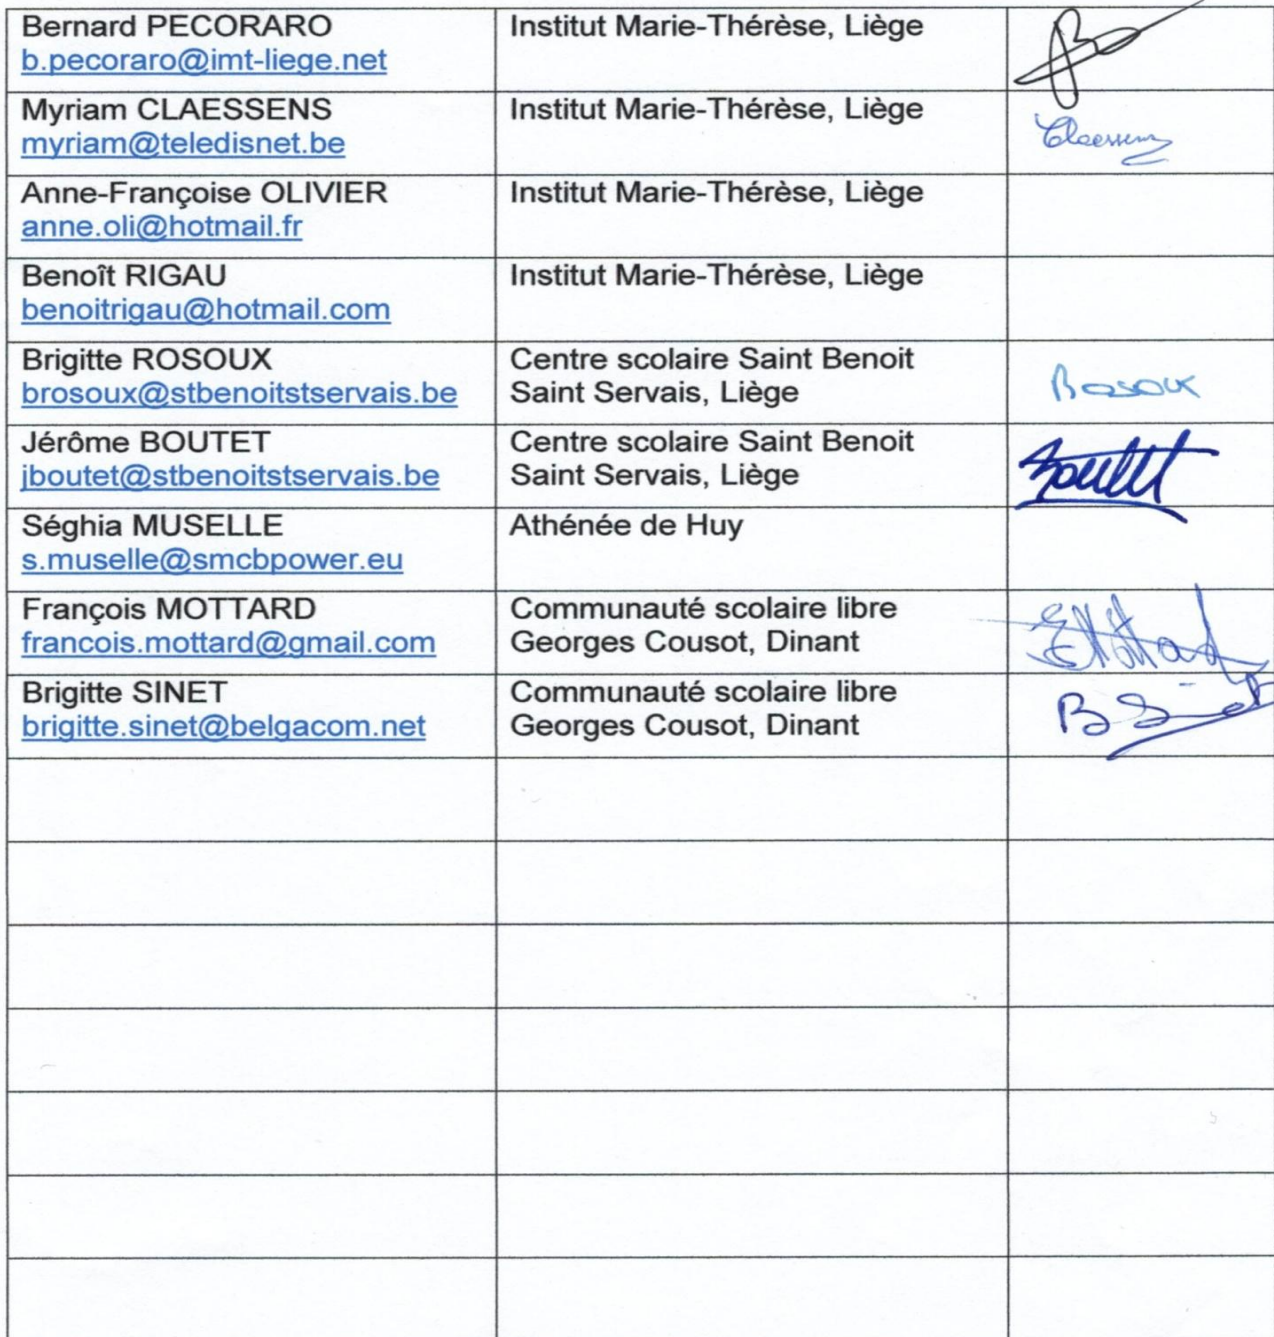 Bernard PECORARO
b.pecoraro@imt-liege.net
Institut Marie-Thérèse, Liège
Myriam CLAESSENS
myriam@teledisnet.be
Institut Marie-Thérèse, Liège
Claessens
Anne-Françoise OLIVIER
anne.oli@hotmail.fr
Institut Marie-Thérèse, Liège
Benoît RIGAU
benoitrigau@hotmail.com
Institut Marie-Thérèse, Liège
Brigitte ROSOUX
brosoux@stbenoitstservais.be
Centre scolaire Saint Benoit
Saint Servais, Liège
BRosoux
Jérôme BOUTET
jboutet@stbenoitstservais.be
Centre scolaire Saint Benoit
Saint Servais, Liège
Boutet
Séghia MUSELLE
s.muselle@smcbpower.eu
Athénée de Huy
François MOTTARD
francois.mottard@gmail.com
Communauté scolaire libre
Georges Cousot, Dinant
Brigitte SINET
brigitte.sinet@belgacom.net
Communauté scolaire libre
Georges Cousot, Dinant
B Sinet